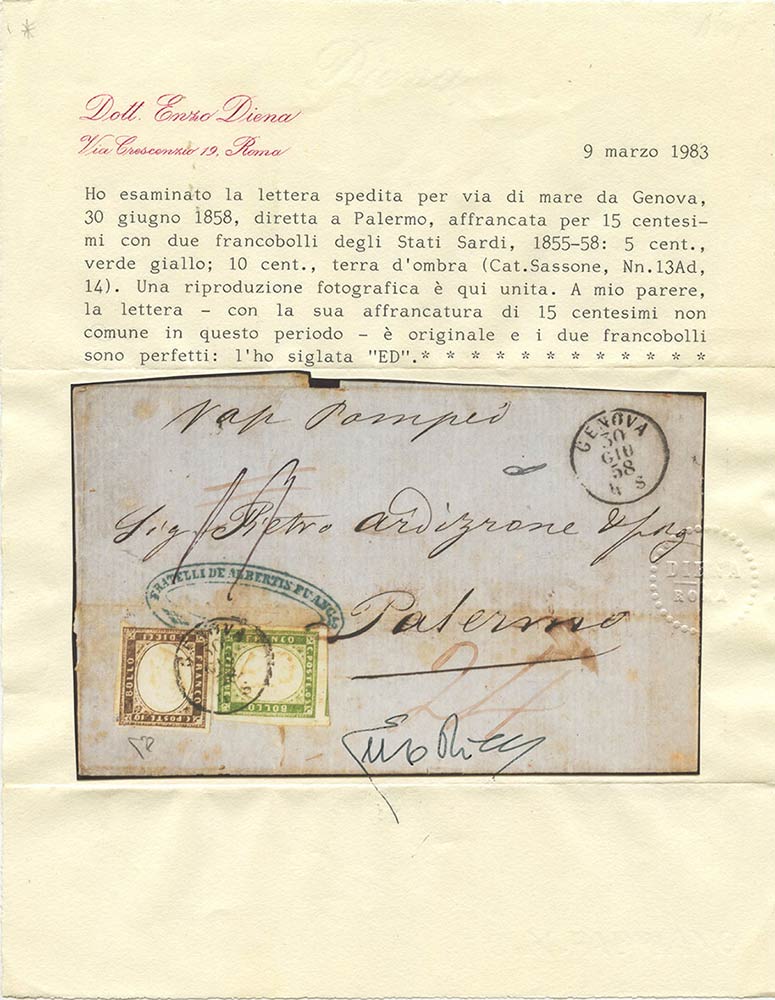 Dott. Enzo Diena
Via Crescenzio 19, Roma
9 marzo 1983
Ho esaminato la lettera spedita per via di mare da Genova,
30 giugno 1858, diretta a Palermo, affrancata per 15 centesi-
mi con due francobolli degli Stati Sardi, 1855-58: 5 cent.,
verde giallo; 10 cent., terra d'ombra (Cat.Sassone, Nn.13Ad,
14). Una riproduzione fotografica è qui unita. A mio parere,
la lettera - con la sua affrancatura di 15 centesimi non
comune in questo periodo - è originale e i due francobolli
sono perfetti: l'ho siglata "ED".* * * * * * * * * * * * *
Vap Pompei
GENOVA
30
GIU
58
4 S
Sig Pietro Ardizzone &
FRATELLI DE ALBERTIS FU ANGO
Palermo
DIENA
ROMA
FRANCO
BOLLO
C. POSTE 10
DIECI
C. POSTE 5
CINQUE
BOLLO
24
Enzo Diena